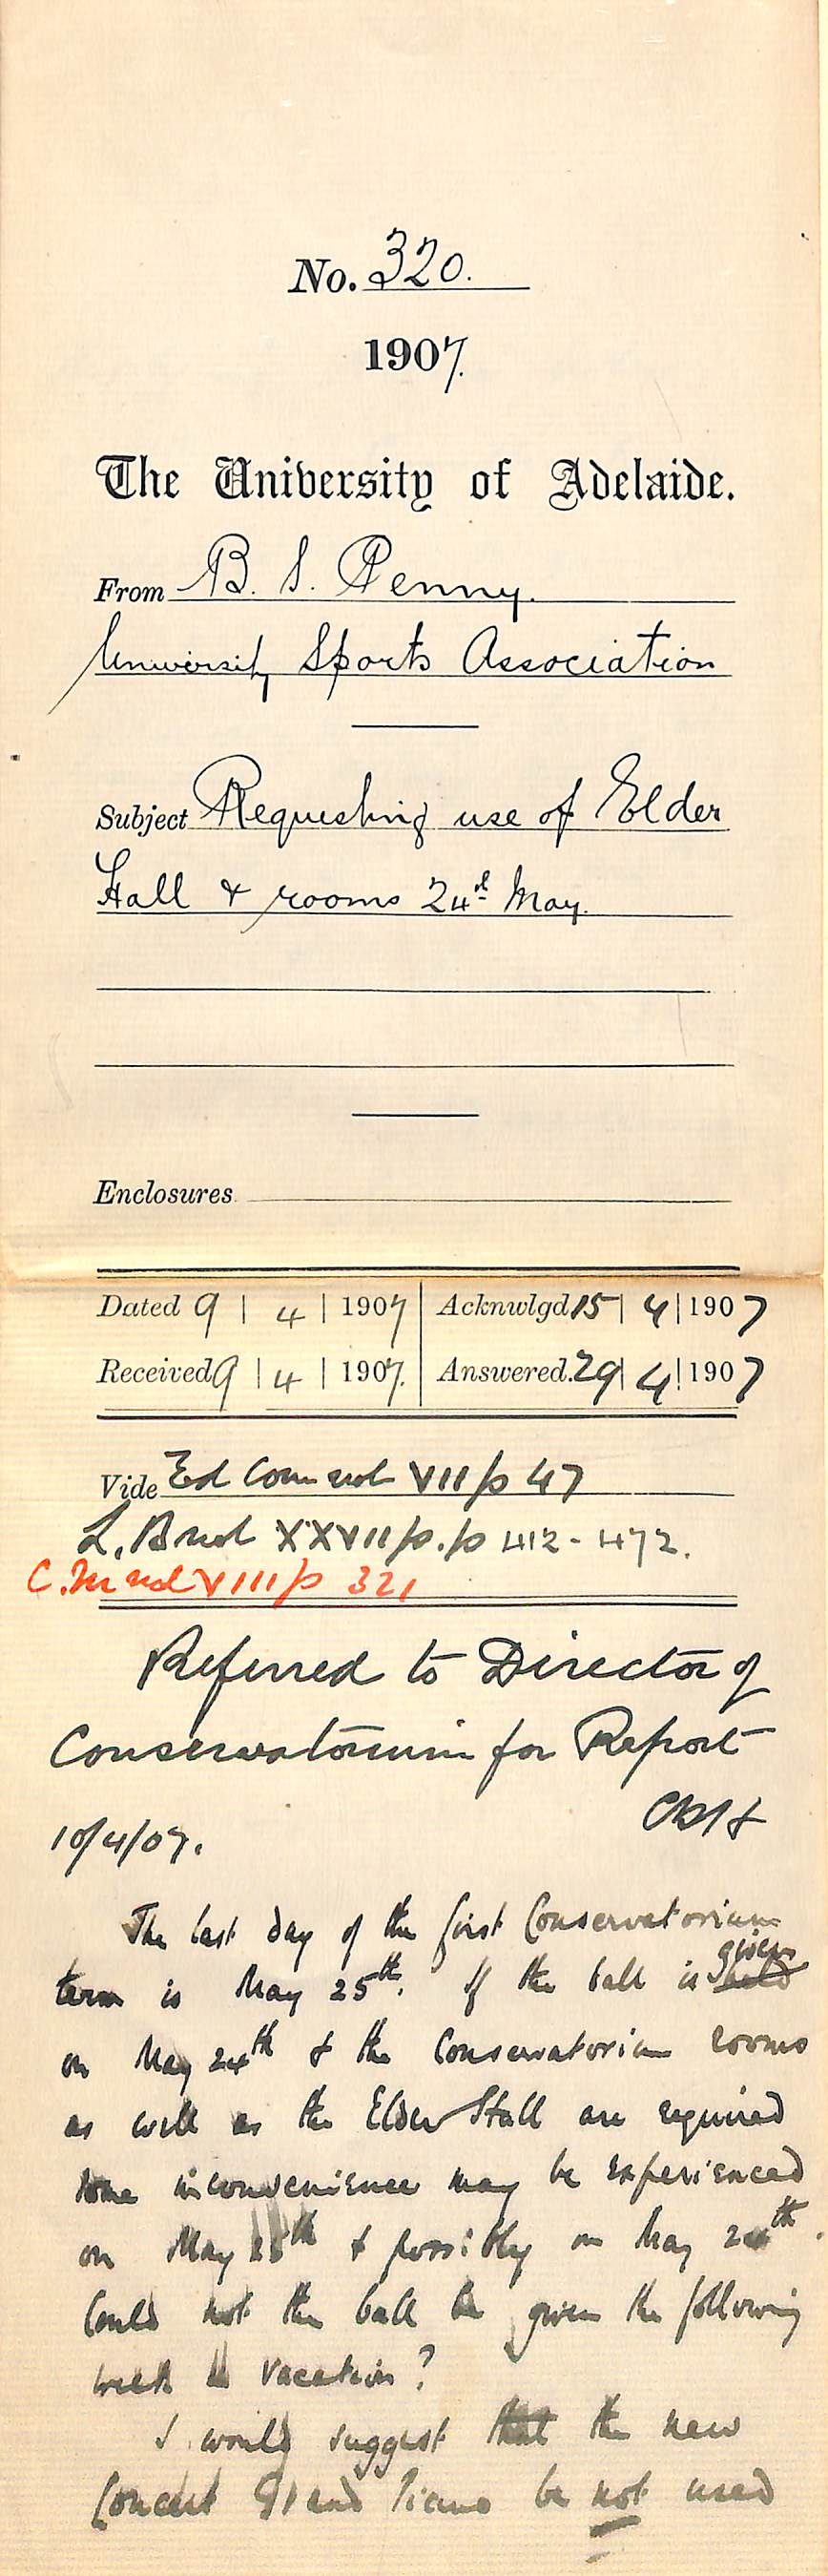 No. 320.
1907.
The University of Adelaide.
From B. S. Penny.
University Sports Association
Subject Requesting use of Elder
Hall & rooms 24d May.
Enclosures
Dated 9 | 4 | 1907 | Acknwlgd 15 | 4 | 1907
Received 9 | 4 | 1907. | Answered. 29 | 4 | 1907
Vide Ed Com vol VII p 47
L. B vol XXVII p.p 412-472.
C. M vol VIII p 321
Referred to Director of
Conservatorium for Report
10/4/07.
The last day of the first Conservatorium
term is May 25th. If the ball is held given
on May 24th & the Conservatorium rooms
as well as the Elder Hall are required
some inconvenience may be experienced
on May 25th & possibly on May 24th.
Could not the ball be given the following
week in vacation?
I would suggest that the new
Concert Grand Piano be not used